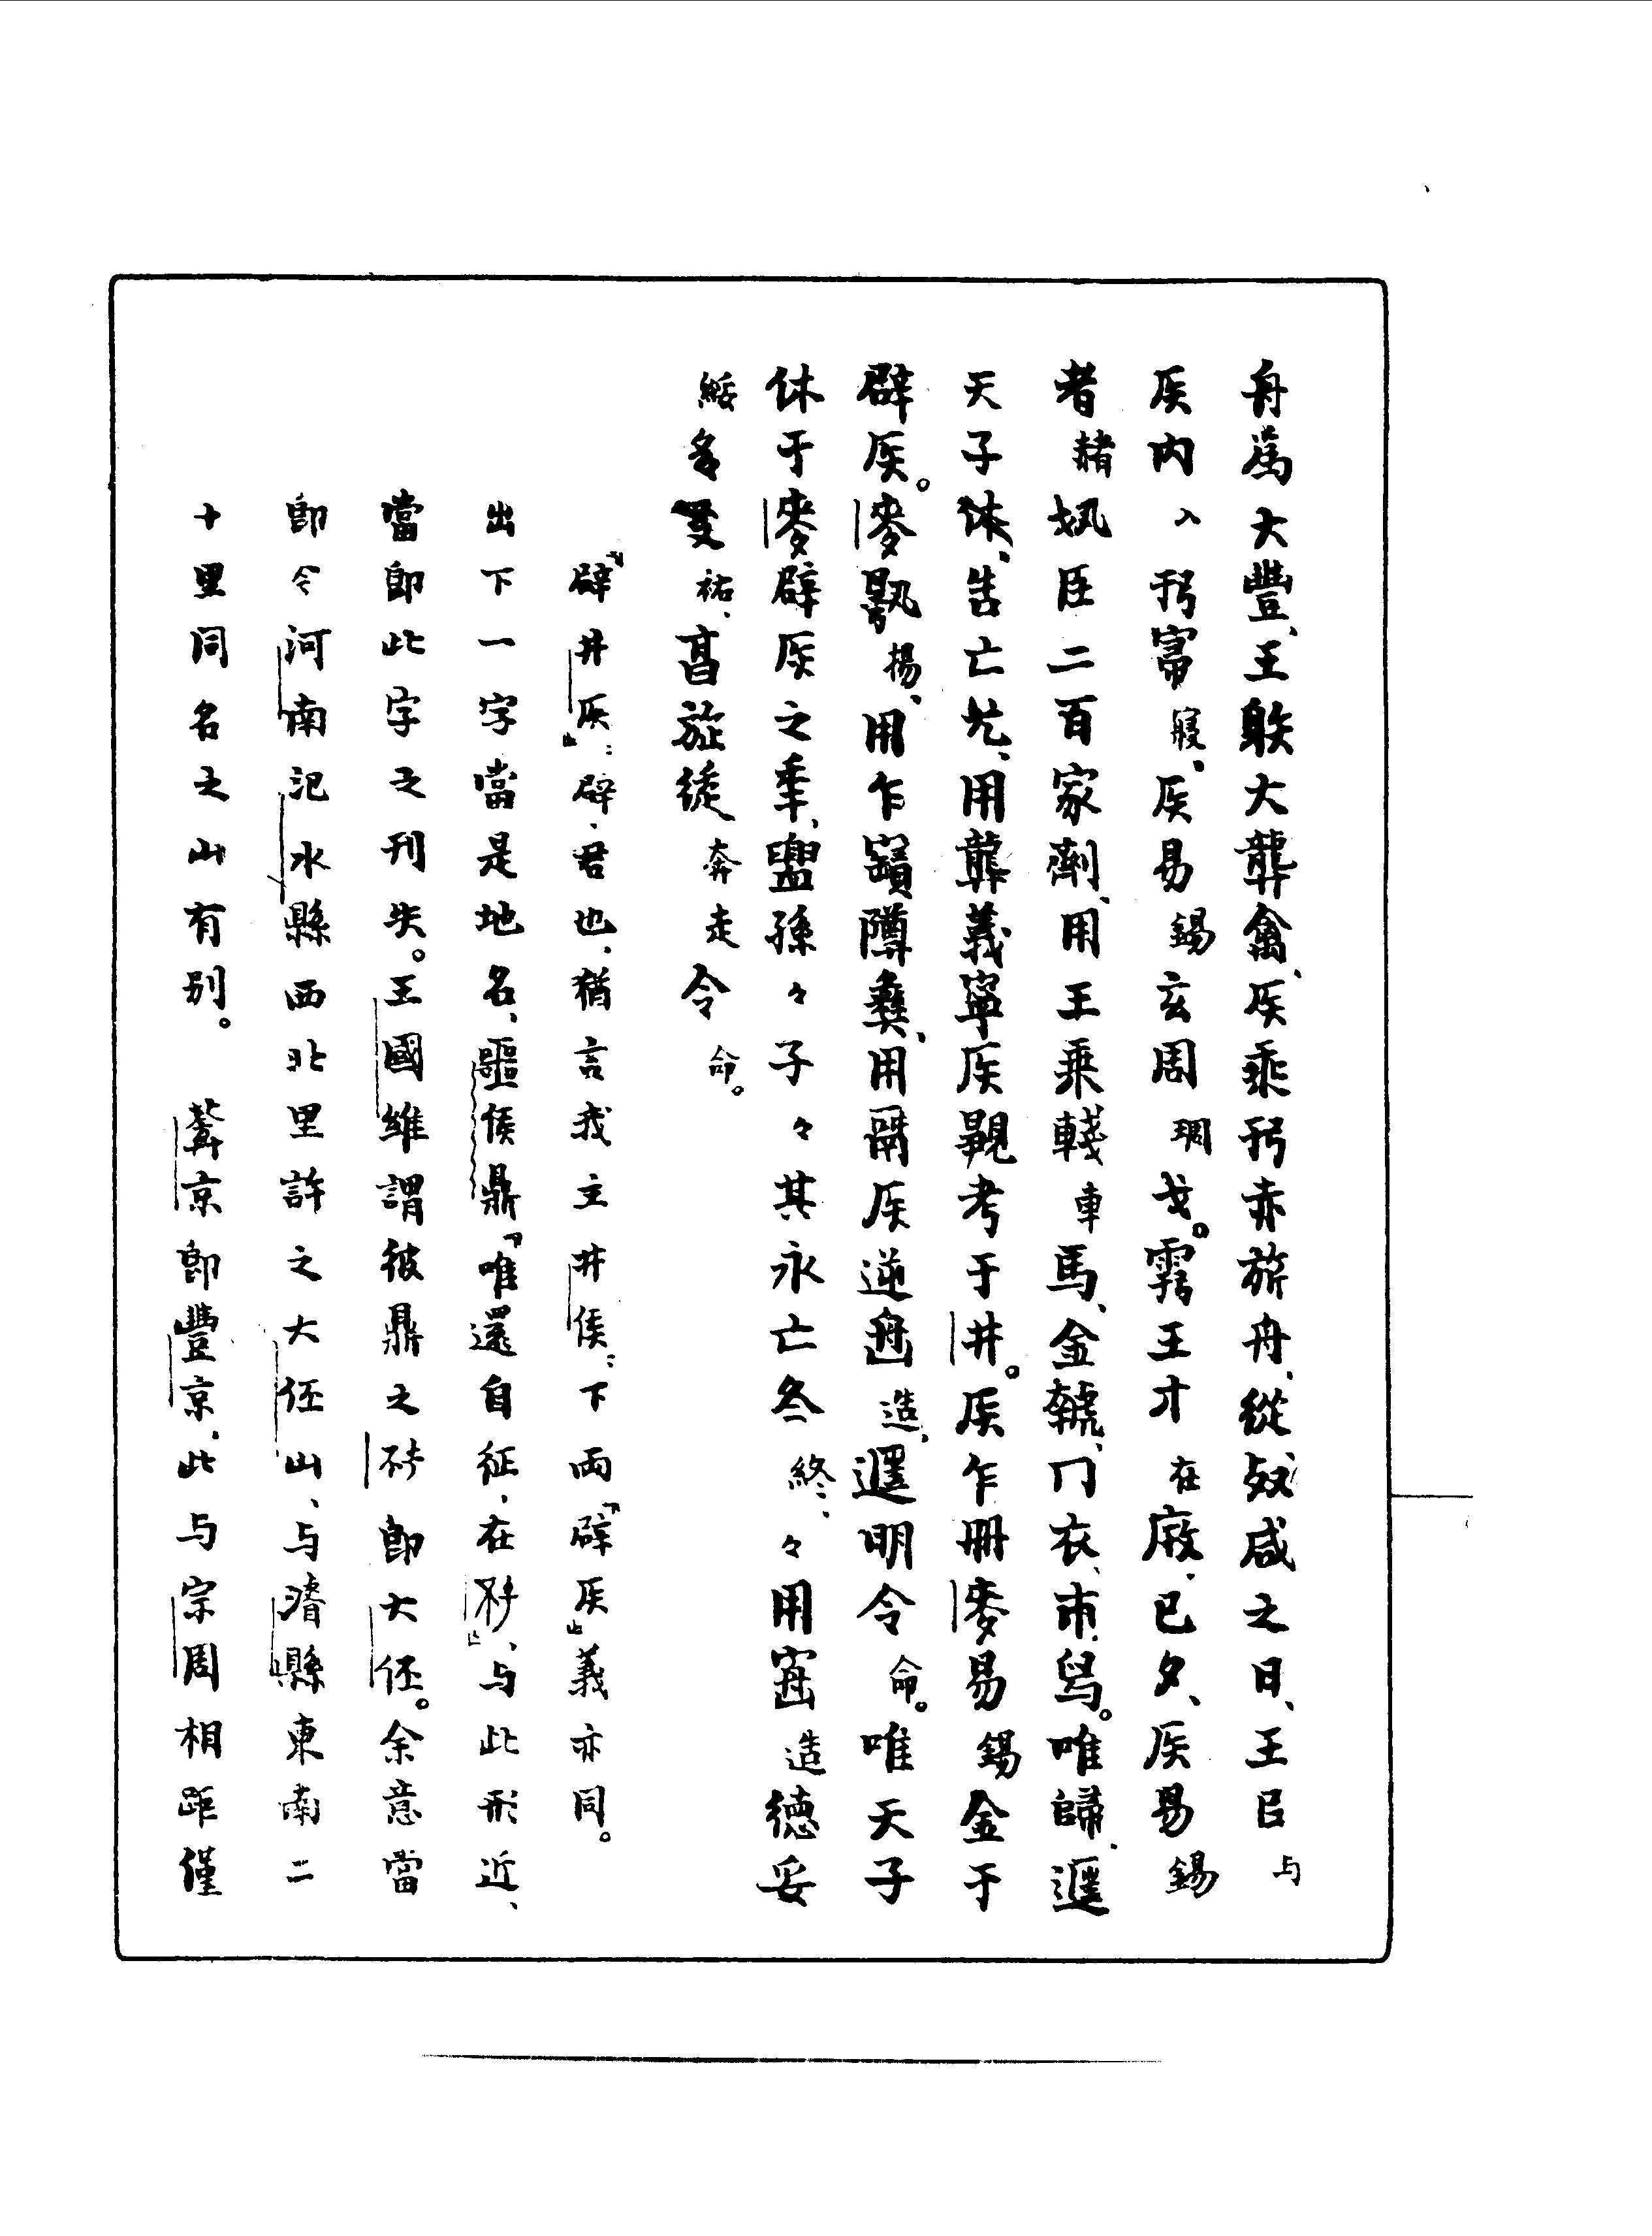 舟爲大豐、王躲大龏禽、𥎦乘𢓊赤旂舟、從、咸之日、王㠯与
𥎦内入𢓊𡪢寢、𥎦易錫玄周琱戈。雩王才在㡴、已夕、𥎦易錫
者赭𡖊臣二百家劑、用王乘車馬、金、冂衣、巿、舄。唯歸、𨖴
天子休、告亡尤、用龏義寧𥎦䫉考于井。𥎦乍册麥易錫金于
辟𥎦。麥揚、用乍寶𨻰彝、用𠭯𥎦逆造、𨖴明令命。唯天子
休于麥辟𥎦之年、盥孫々子々其永亡冬終、々用造德妥
綏多友祐、亯旋徒奔走令命。
「辟井𥎦」：辟、君也、猶言我主井侯：下兩「辟𥎦」義亦同。
出下一字當是地名、噩侯鼎「唯還自征、在」、与此形近、
當卽此字之刊失。王國維謂彼鼎之卽大伾。余意當
卽今河南汜水縣西北里許之大伾山、与濬縣東南二
十里同名之山有别。　䒶京卽豐京、此与宗周相距僅